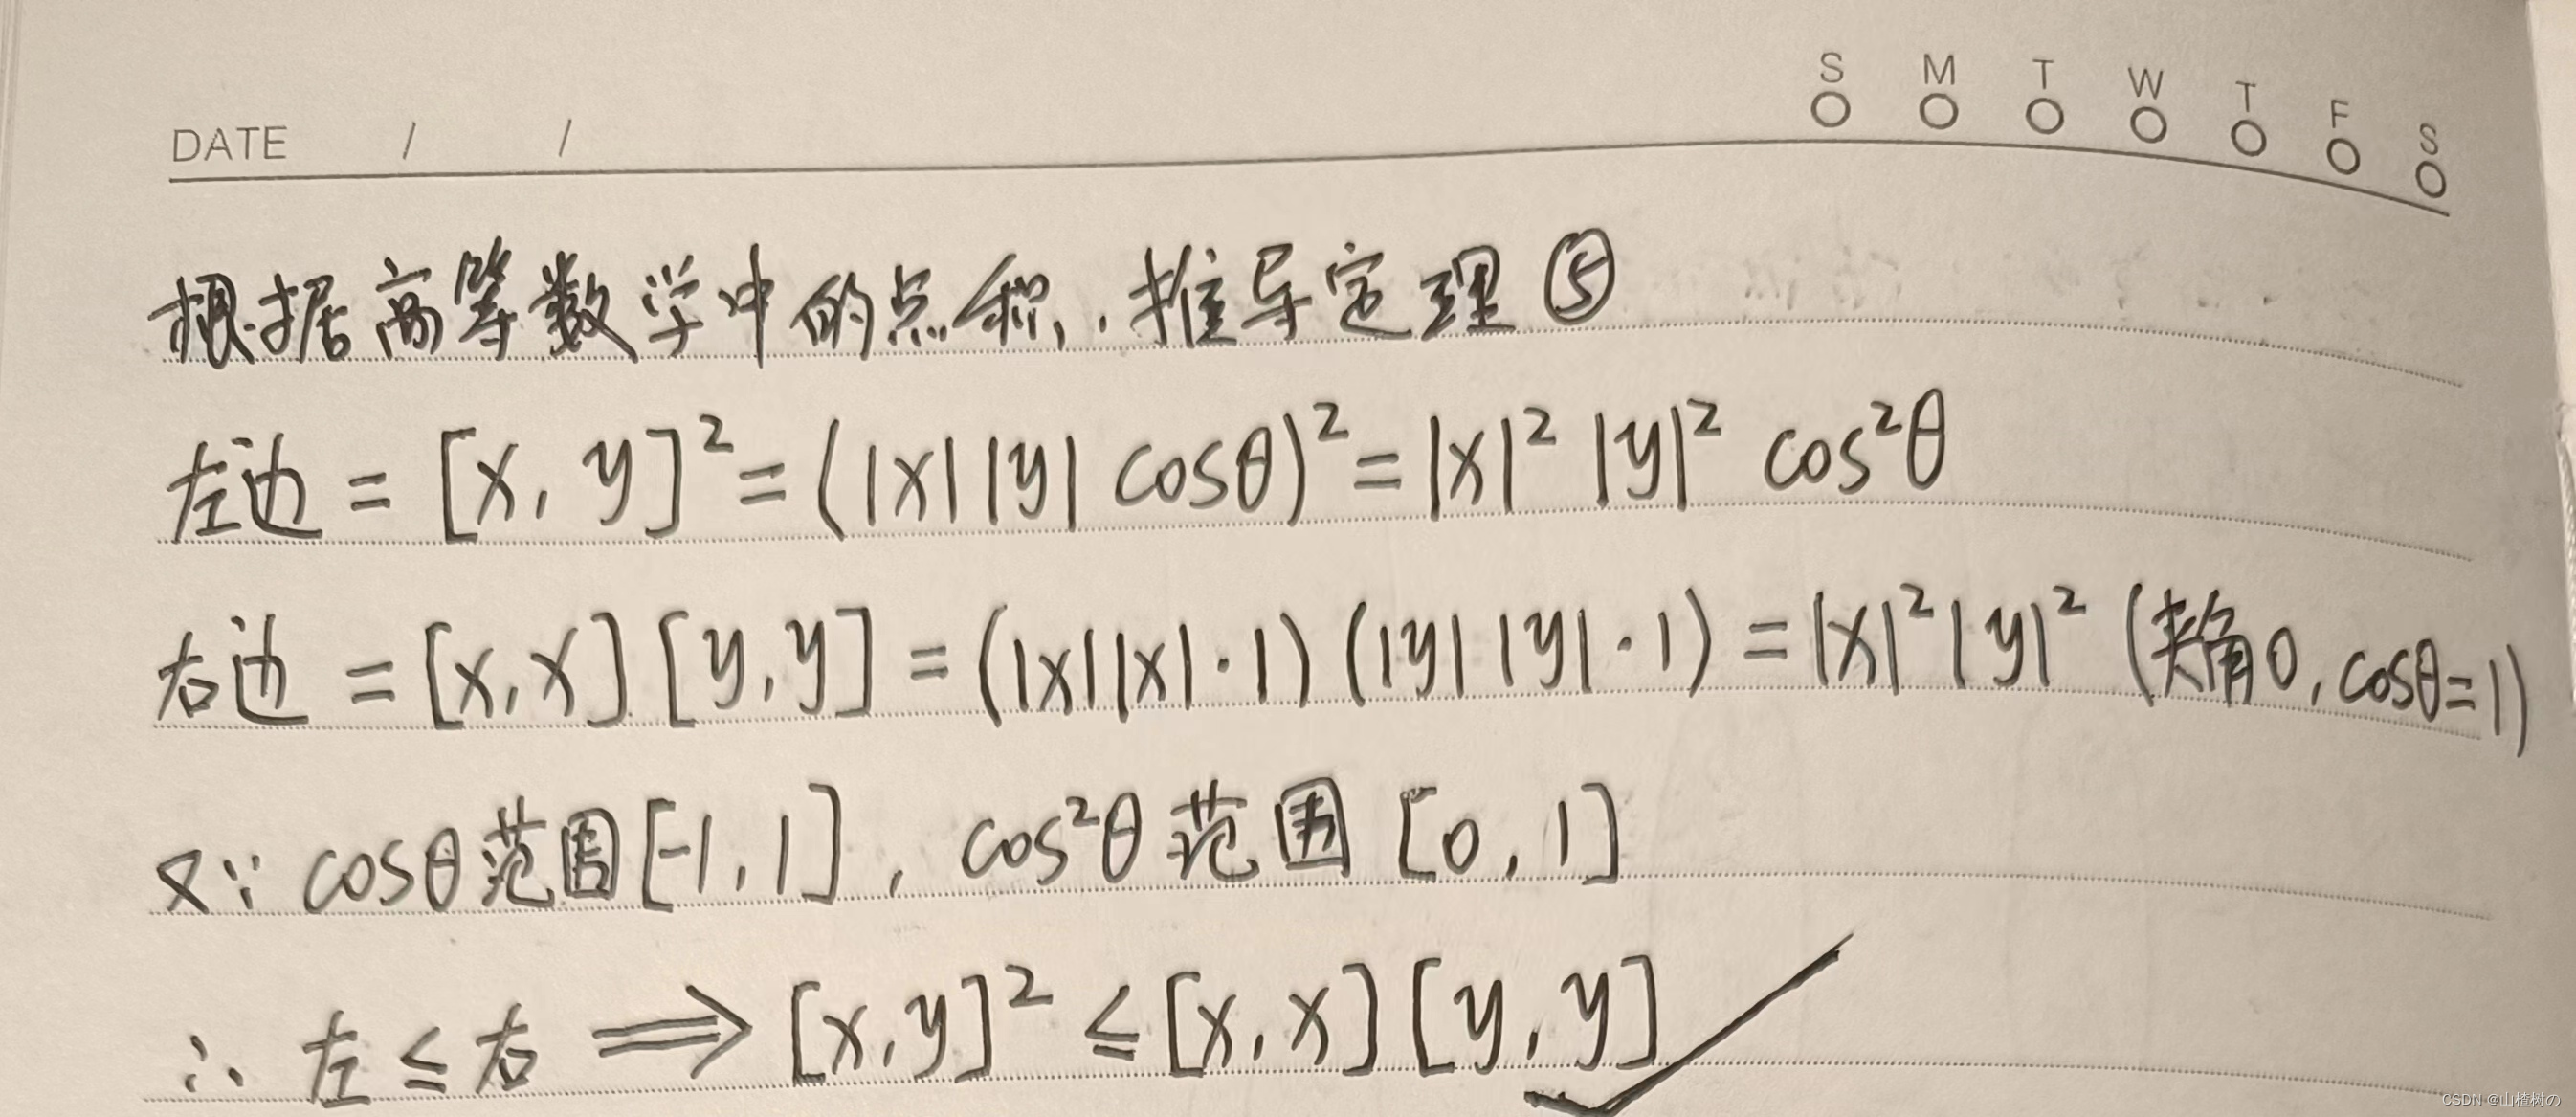 S M T W T F S
DATE / /
根据高等数学中的点积,.推导定理⑤
左边 = [x, y]² = (|x||y| cosθ)² = |x|² |y|² cos²θ
右边 = [x, x] [y, y] = (|x||x|·1) (|y||y|·1) = |x|²|y|² (夹角0, cosθ=1)
又∵ cosθ范围[-1, 1], cos²θ范围 [0, 1]
∴ 左 ≤ 右 ⟹ [x, y]² ≤ [x, x] [y, y] ✓
CSDN @山楂树の